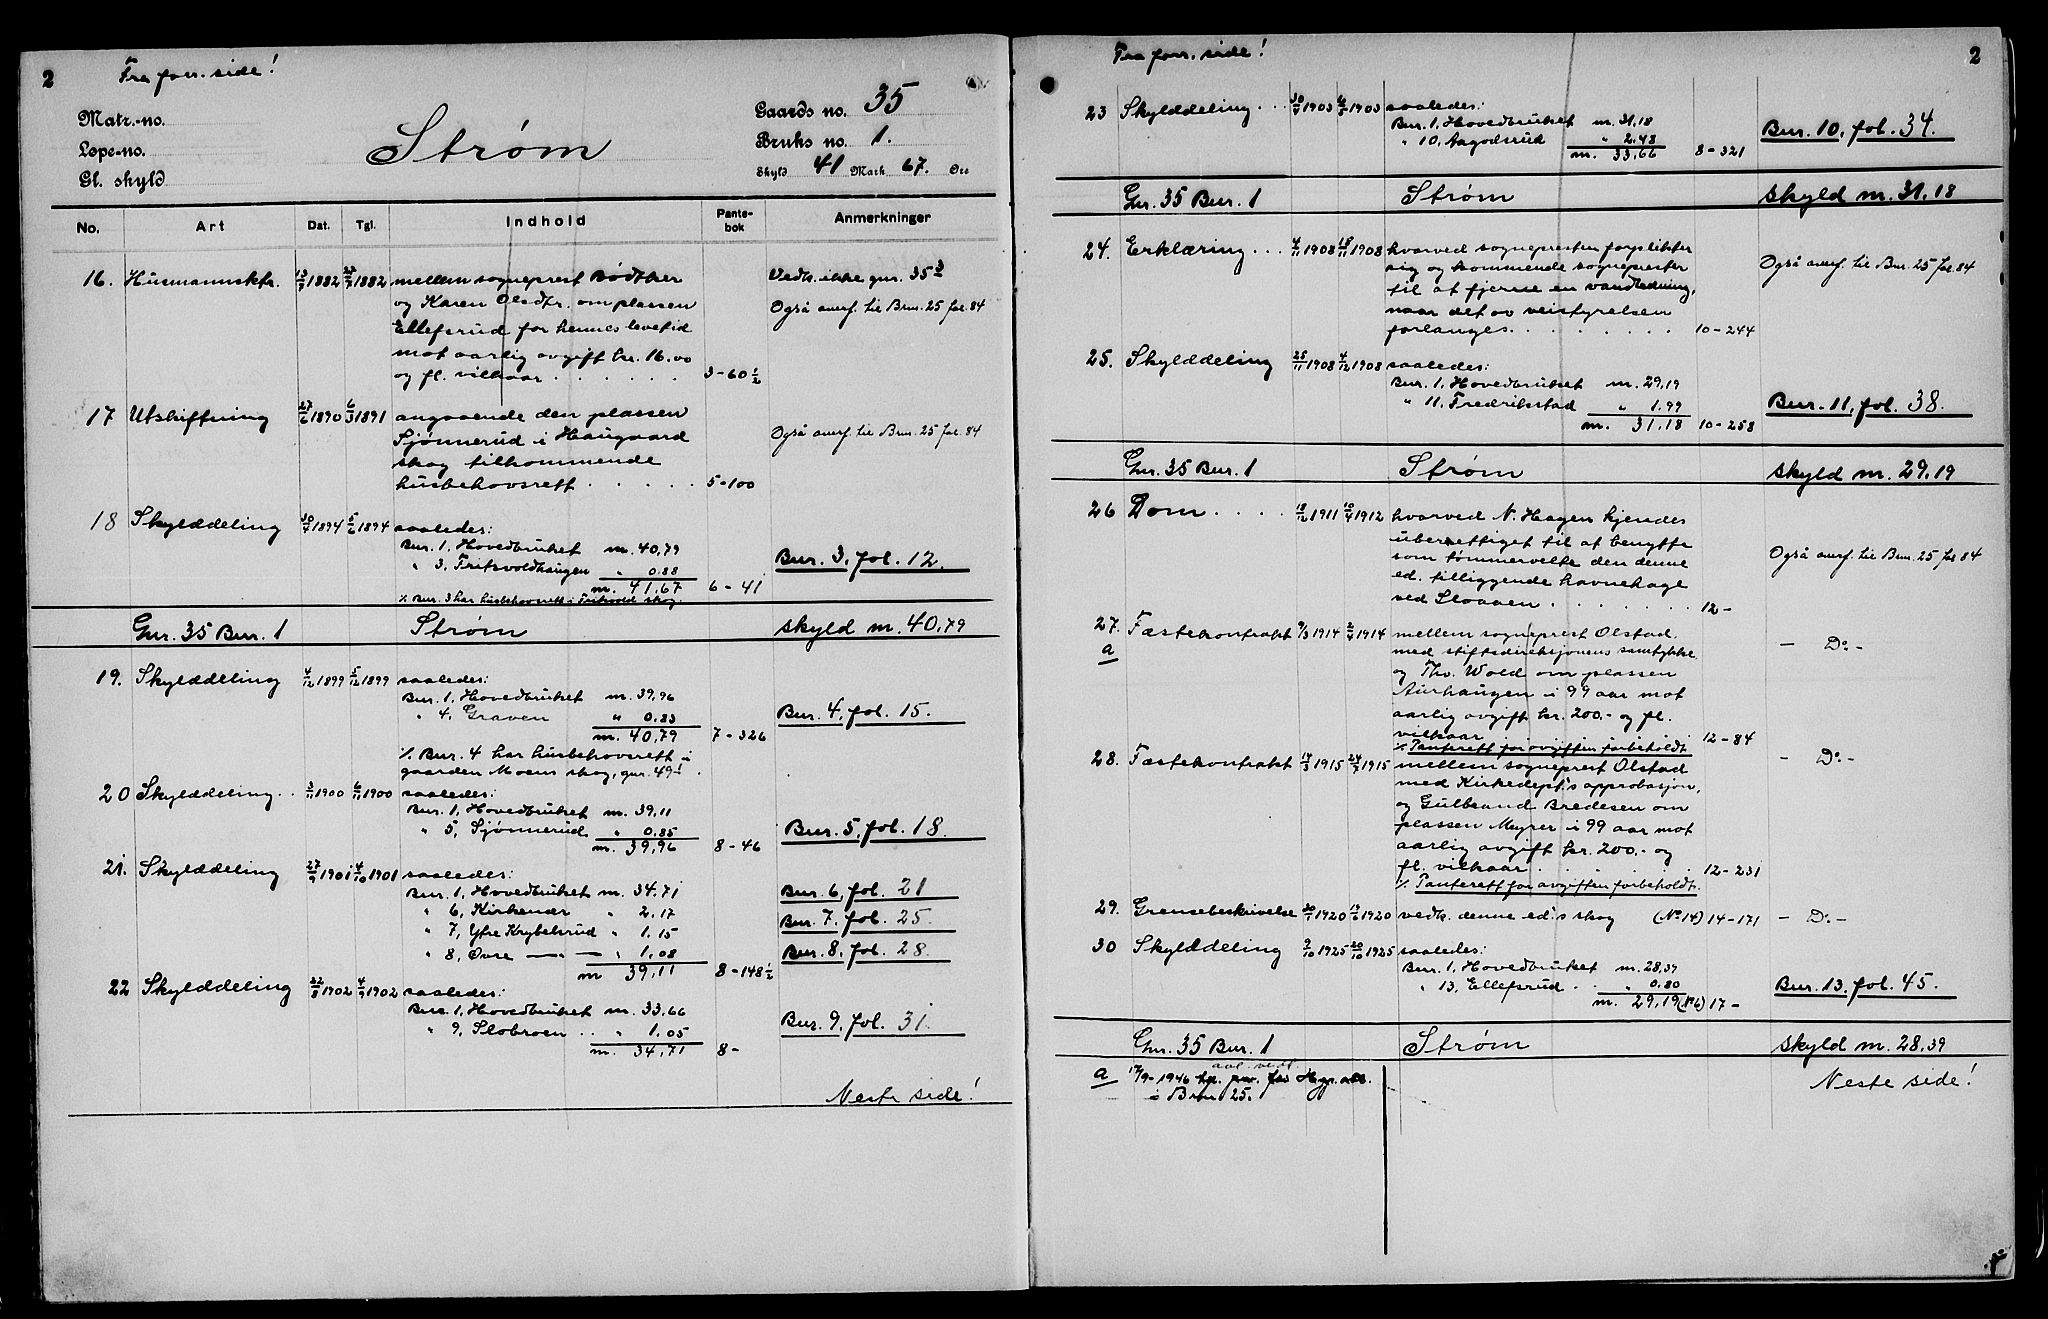 2 Fra forr. side!
Matr.-no.
Løpe-no.
Gl. skyld
Strøm
Gaards no. 35
Bruks no. 1.
Skyld 41 Mark 67. Øre
No. Art Dat. Tgl. Indhold Pante-bok Anmerkninger
16. Husmannsktr. 13/9 1882 1882 mellem sogneprest Bødtker Vedk. ikke gnr. 35 3
og Karen Olsdtr. om plassen Også anrf. til Brn. 25 fol. 84
Ellefsrud for hennes levetid
mot aarlig avgift kr. 16.00
og fl. vilkaar . . . . . . 3-60 1/2
17 Utskiftning 27/6 1890 6/3 1891 angaaende den plassen
Sjønnerud i Haugaard Også anrf. til Brn. 25 fol. 84
skog tilkommende
husbehovsrett . . . . . 5-100
18 Skylddeling 30/4 1894 5/6 1894 saaledes:
Bnr. 1, Hovedbruket m. 40,79
" 3, Fritsvoldhaugen " 0.88 Bnr. 3, fol. 12.
m. 41,67 6-41
% Bnr. 3 har husbehovsrett i skog.
Gnr. 35 Bnr. 1 Strøm skyld m. 40,79
19. Skylddeling 4/12 1899 5/12 1899 saaledes:
Bnr. 1, Hovedbruket m. 39,96
" 4, Graven " 0.83 Bnr. 4, fol. 15.
m. 40,79 7-326
% Bnr. 4 har husbehovsrett i
gaarden Moens skog, gnr. 49 1.
20 Skylddeling. . 3/11 1900 6/11 1900 saaledes:
Bnr. 1, Hovedbruket m. 39,11
" 5, Sjønnerud " 0.85 Bnr. 5, fol. 18.
m. 39,96 8-46
21. Skylddeling 27/9 1901 4/10 1901 saaledes:
Bnr. 1, Hovedbruket m. 34,71 Bnr. 6, fol. 21
" 6, Kirkenær " 2,17 Bnr. 7. fol. 25.
" 7, Ytre Krybelsrud " 1.15
" 8, Øvre — " — " 1,08 Bnr. 8, fol. 28.
m 39,11 8-148 1/2
22 Skylddeling 22/8 1902 4/9 1902 saaledes:
Bnr. 1, Hovedbruket m. 33,66
" 9, Slobroen . . " 1,05 Bnr. 9, fol. 31.
m. 34,71 8-
Neste side!
Fra forr. side! 2
23 Skylddeling . . . 30/4 1903 6/5 1903 saaledes:
Bnr. 1, Hovedbruket m. 31,18 Bnr. 10, fol. 34.
" 10, Aagodsrud " 2,48
m. 33,66 8-321
Gnr. 35 Bnr. 1 Strøm skyld m. 31,18
24. Erklæring . . . 4/11 1908 18/11 1908 hvorved sognepresten forplikter
sig og kommende sogneprester Også anrf. til Bnr. 25 fol. 84
til at fjerne en vandledning,
naar det av veistyrelsen
forlanges . . . . . . . . 10-244
25. Skylddeling 25/11 1908 4/12 1908 saaledes:
Bnr. 1, Hovedbruket m. 29,19
" 11, Fredrikstad " 1.99 Bnr. 11, fol. 38.
m. 31.18 10-258
Gnr. 35 Bnr. 1 Strøm skyld m. 29,19
26 Dom . . . . 18/12 1911 10/4 1912 hvorved N. Hagen kjendes
uberettiget til at benytte
som tømmervelte den denne Også anrf. til Brn. 25 fol. 84
ed. tilliggende havnehage
ved Sloaaen . . . . . . . 12-
27. Fæstekontrakt 9/3 1914 2/4 1914 mellem sogneprest Olstad. — Do —
a med stiftsdireksjonens samtykke
og Thv. Wold om plassen
Aurhaugen i 99 aar mot
aarlig avgift kr. 200.- og fl.
vilkaar 12-84
% Panterett for avgiften forbeholdt
28. Fæstekontrakt 14/3 1915 24/7 1915 mellem sogneprest Olstad — Do —
med Kirkedept.'s approbasjon,
og Gulbrand Bredesen om
plassen Meyrer i 99 aar mot
aarlig avgift kr. 200.- og
fl. vilkaar . . . . . . 12-231
% Panterett for avgiften forbeholdt.
29. Grensebeskrivelse 30/1 1920 19/2 1920 vedk. denne ed's skog (No 14) 14-171 — Do —
30 Skylddeling 2/10 1925 20/10 1925 saaledes:
Bnr. 1, Hovedbruket m. 28,39
" 13, Ellefsrud . . " 0.80 Bnr. 13, fol. 45.
m. 29,19 (No 6) 17-
Gnr. 35 Bnr. 1 Strøm skyld m. 28,39
a 17/9-1946 Neste side!
i Brn 25.